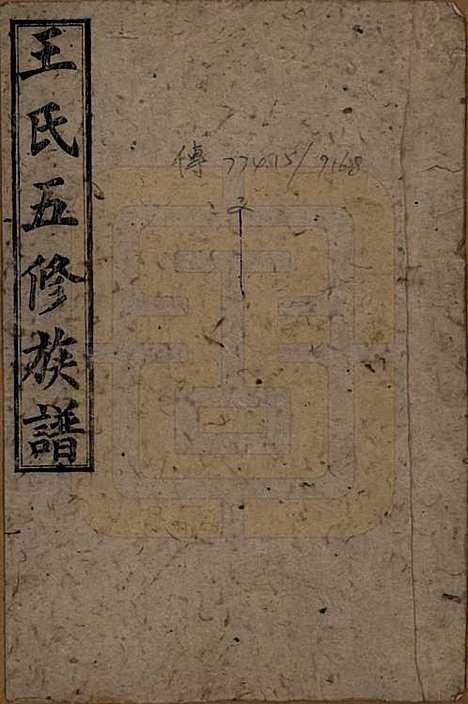 王氏五修族譜
傳 774.15/7168